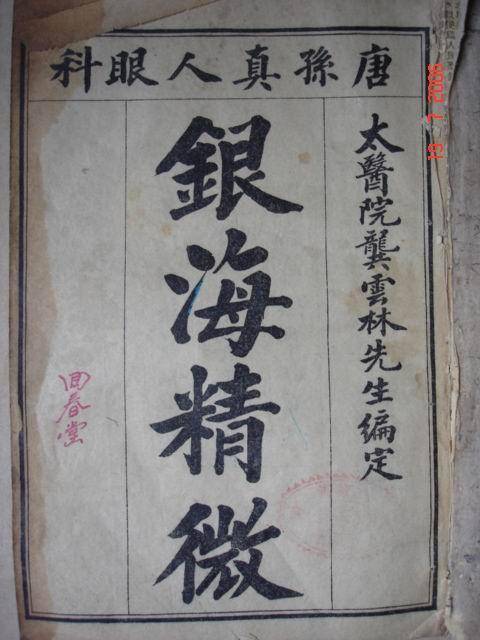 唐孫真人眼科
太醫院龔雲林先生編定
銀海精微
回春堂
19 7 2009